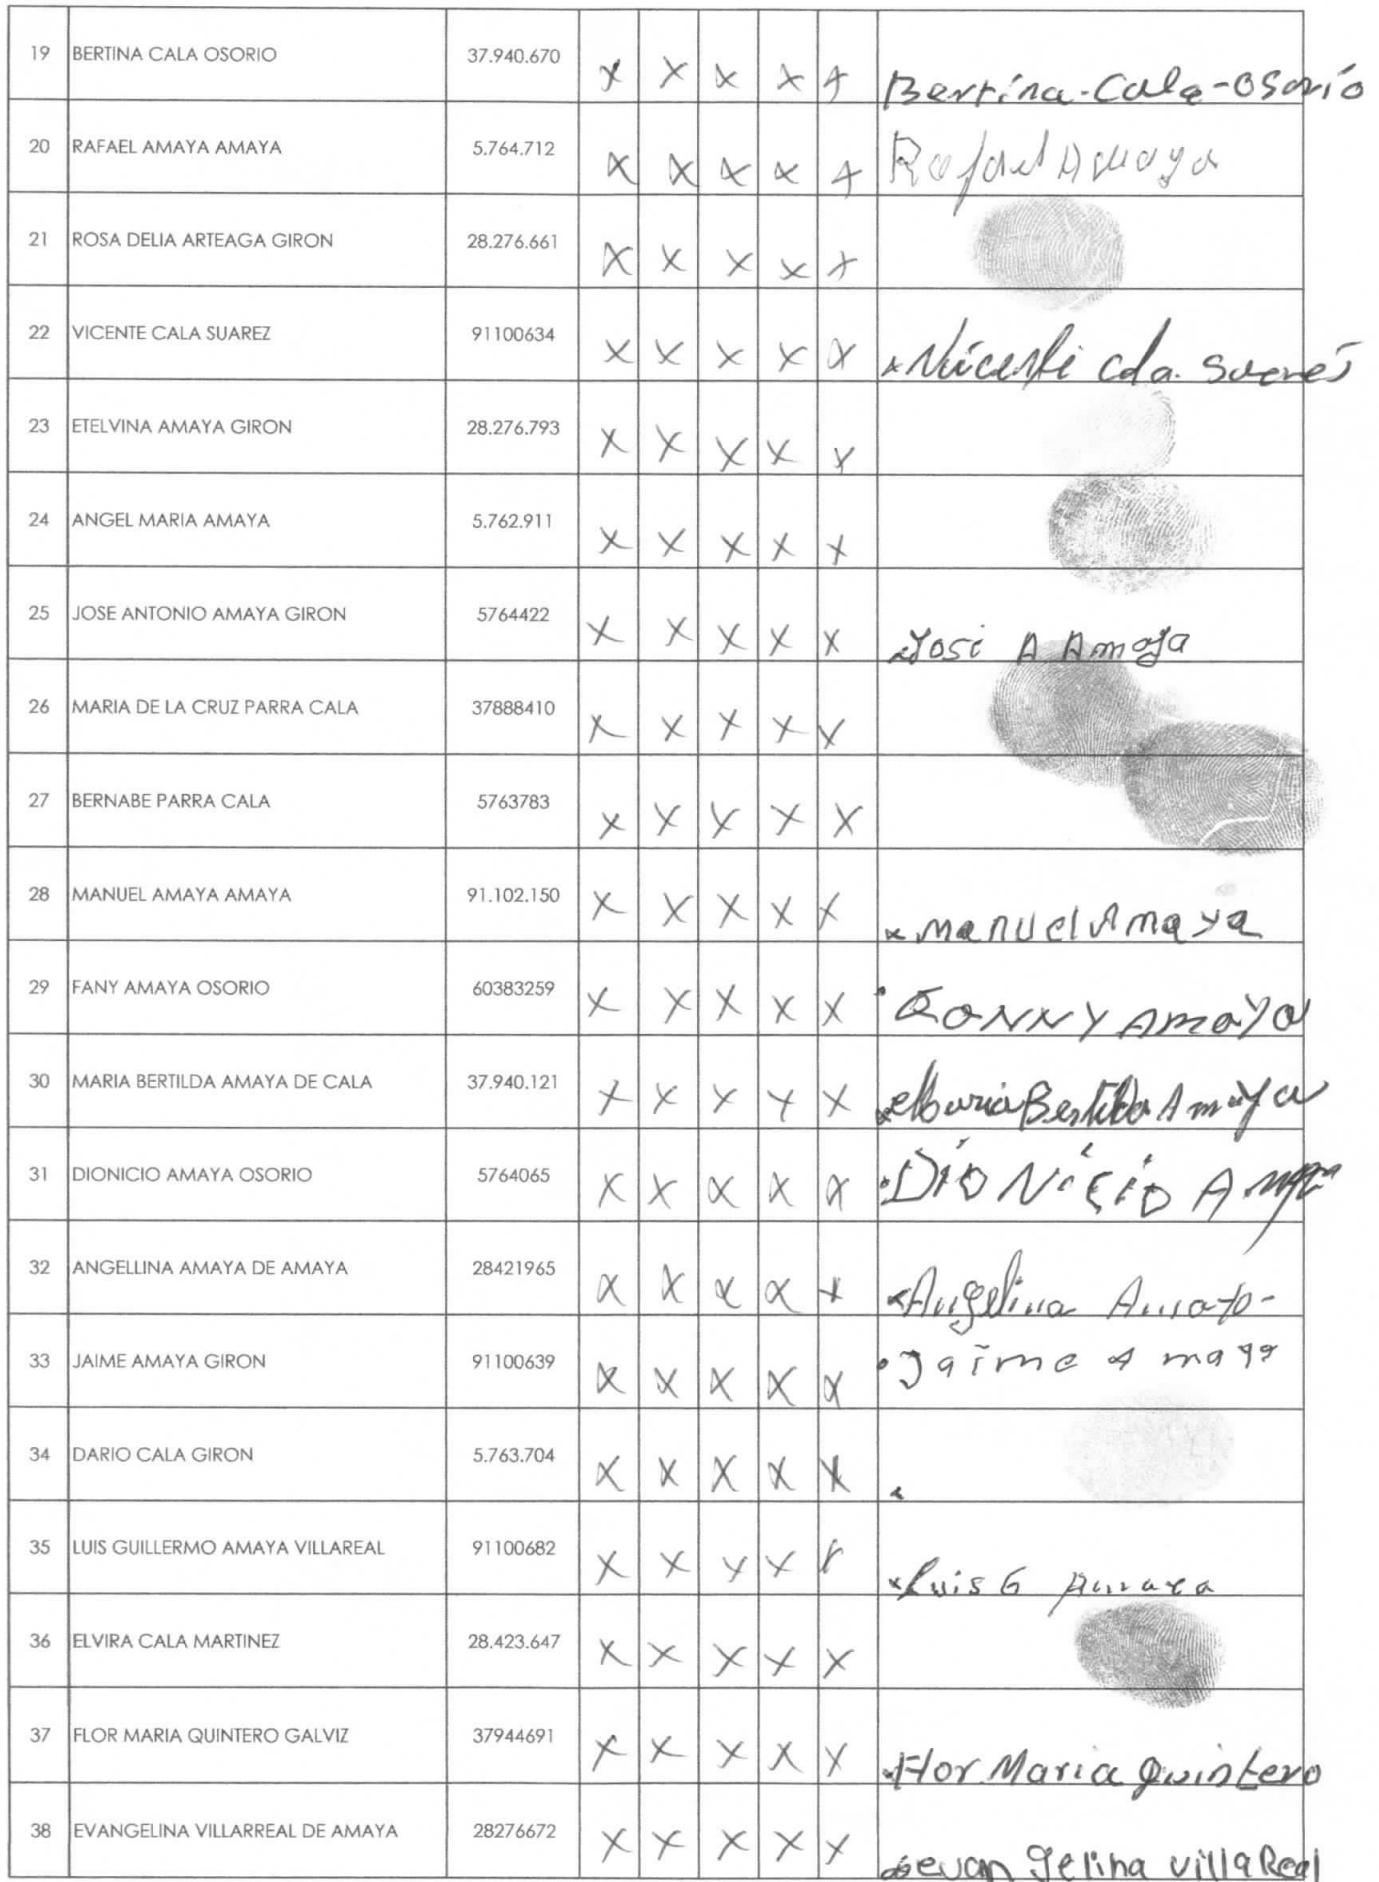 19 BERTINA CALA OSORIO 37.940.670 X X X X X Bertina-Cala-Osorio
20 RAFAEL AMAYA AMAYA 5.764.712 X X X X X Rafael Amaya
21 ROSA DELIA ARTEAGA GIRON 28.276.661 X X X X X
22 VICENTE CALA SUAREZ 91100634 X X X X X x Viicente cala. Suares
23 ETELVINA AMAYA GIRON 28.276.793 X X X X X
24 ANGEL MARIA AMAYA 5.762.911 X X X X X
25 JOSE ANTONIO AMAYA GIRON 5764422 X X X X X x José A Amaya
26 MARIA DE LA CRUZ PARRA CALA 37888410 X X X X X
27 BERNABE PARRA CALA 5763783 X X X X X
28 MANUEL AMAYA AMAYA 91.102.150 X X X X X x manuel Amaya
29 FANY AMAYA OSORIO 60383259 X X X X X FANNY AmAYA
30 MARIA BERTILDA AMAYA DE CALA 37.940.121 X X X X X x Maria Bertilda Amaya
31 DIONICIO AMAYA OSORIO 5764065 X X X X X DioNicio
32 ANGELLINA AMAYA DE AMAYA 28421965 X X X X X x Angelina Amaya-
33 JAIME AMAYA GIRON 91100639 X X X X X Jaime Amaya
34 DARIO CALA GIRON 5.763.704 X X X X X
35 LUIS GUILLERMO AMAYA VILLAREAL 91100682 X X X X X x Luis G Amaya
36 ELVIRA CALA MARTINEZ 28.423.647 X X X X X
37 FLOR MARIA QUINTERO GALVIZ 37944691 X X X X X x Flor Maria Quintero
38 EVANGELINA VILLARREAL DE AMAYA 28276672 X X X X X x evangelina villaReal